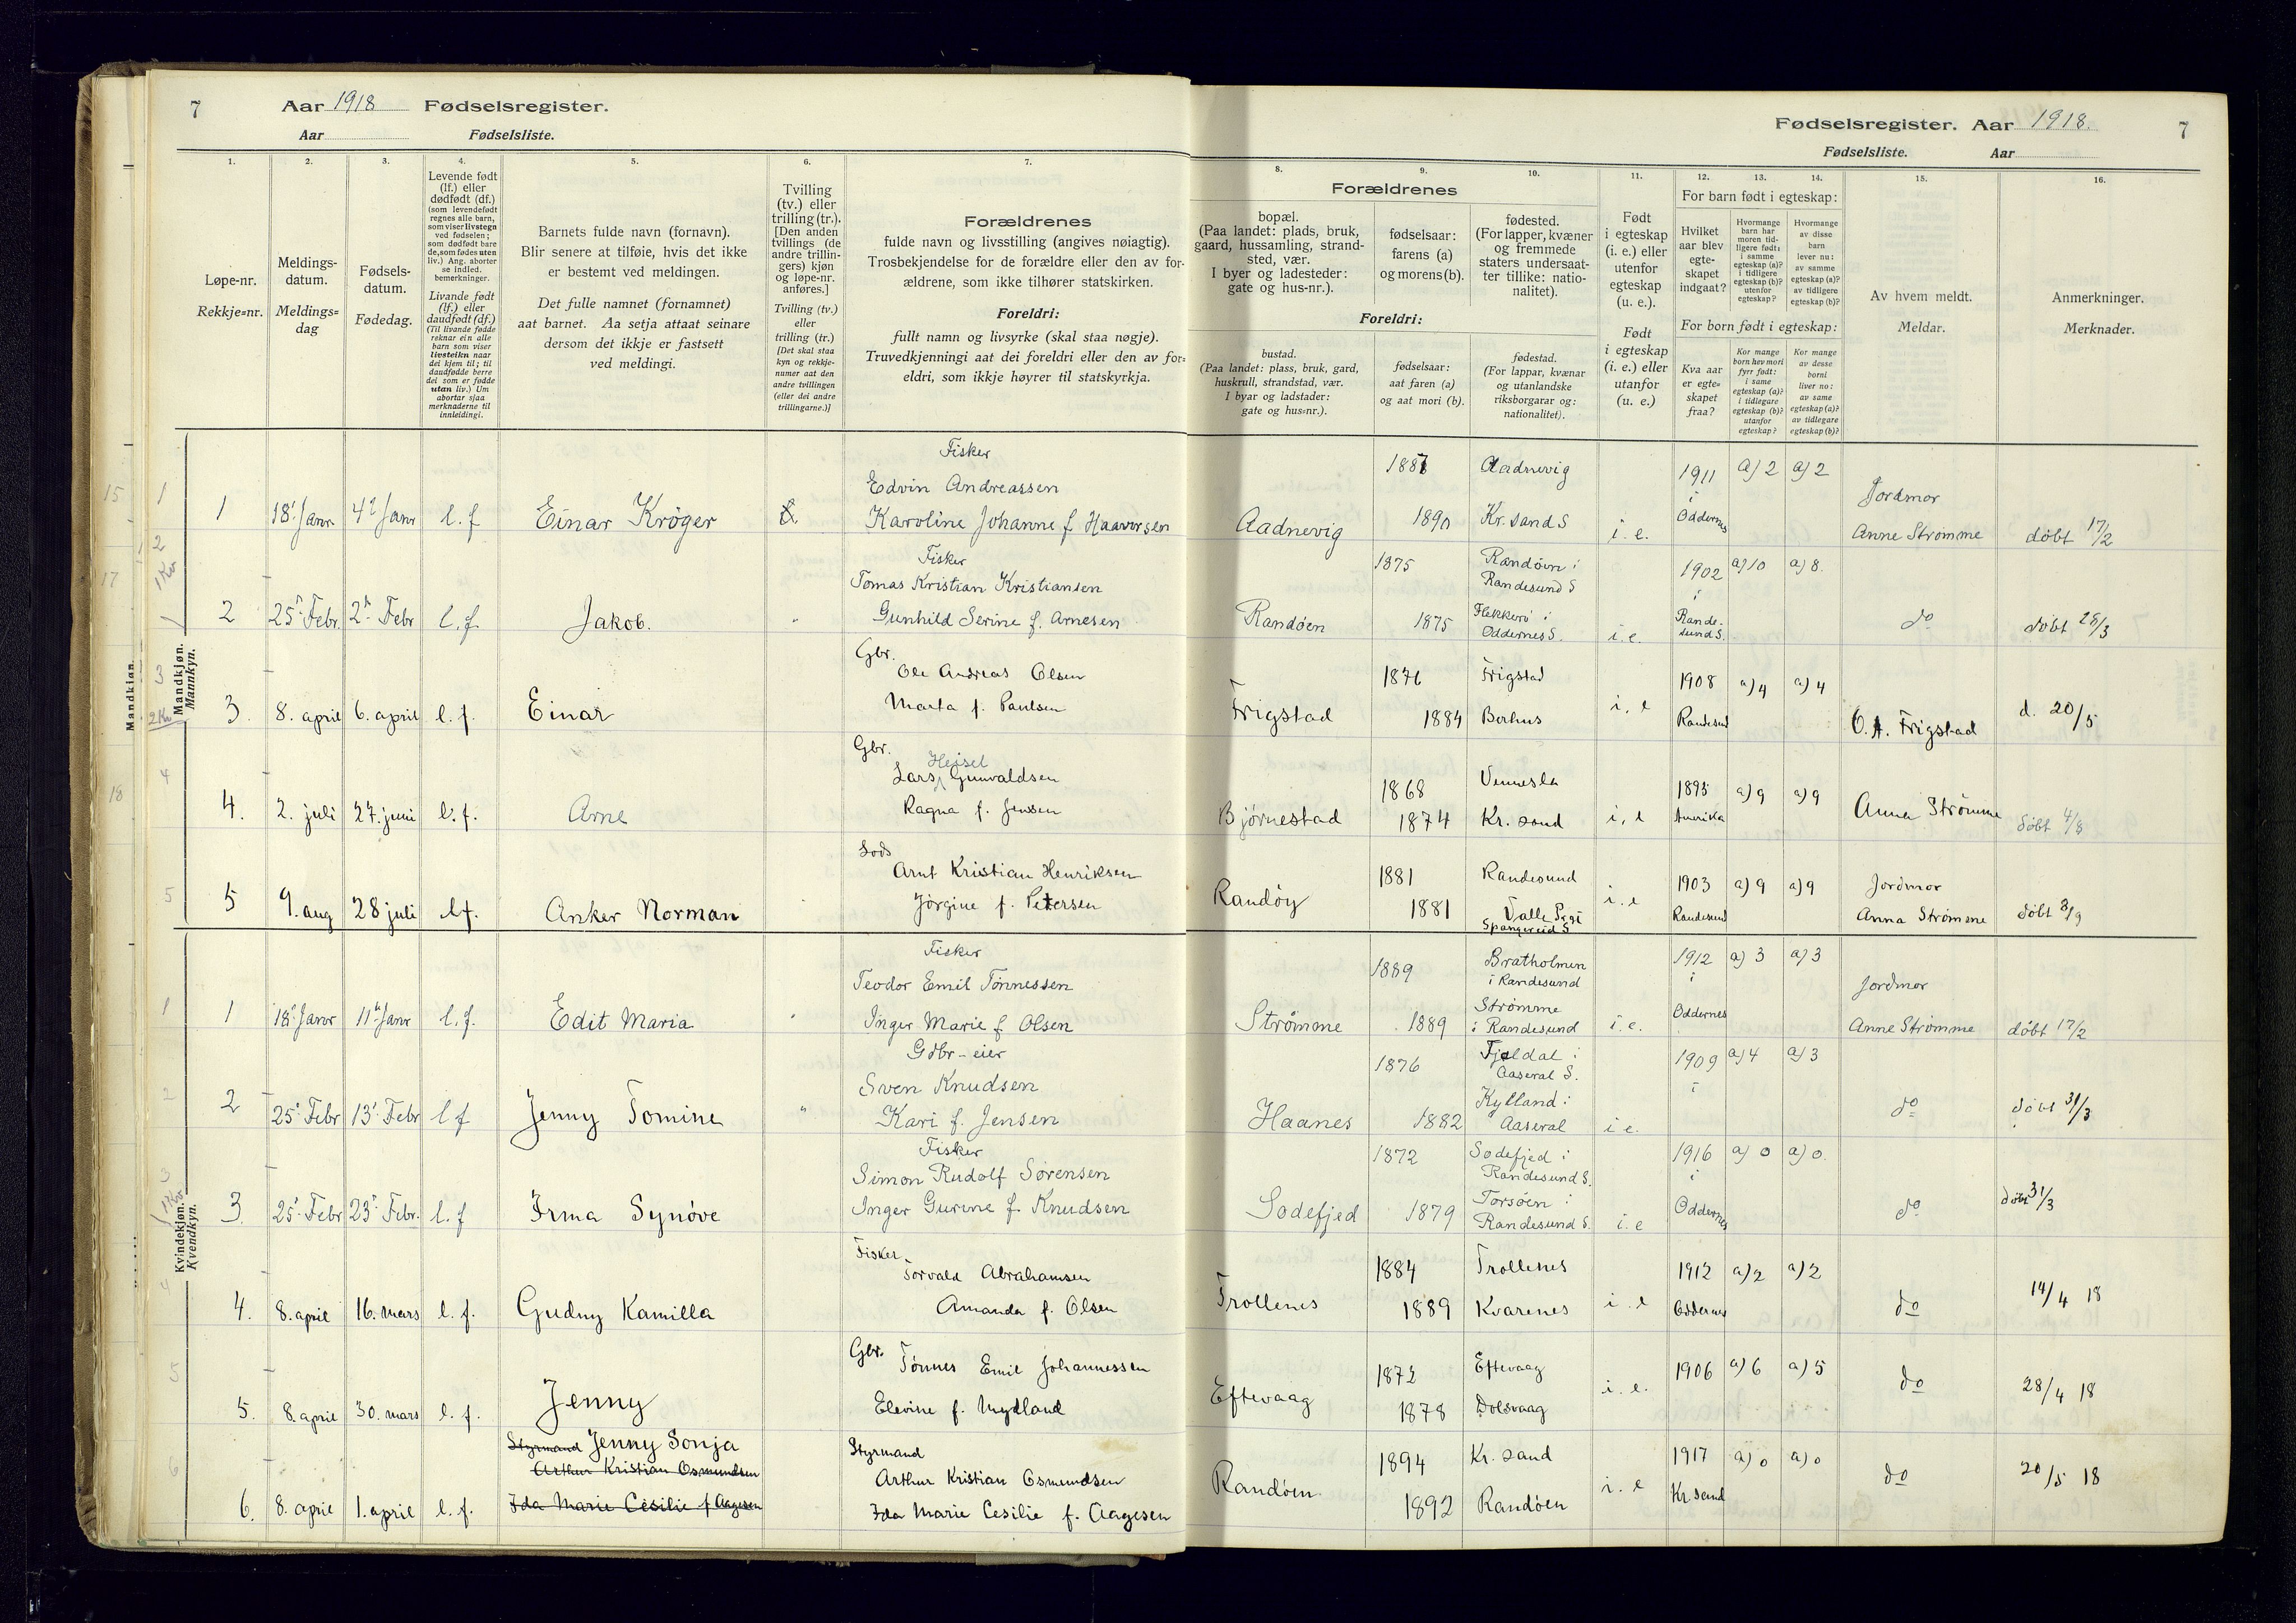 7 Aar 1918 Fødselsregister.
Aar Fødselsliste.
Fødselsregister. Aar 1918. 7
Fødselsliste. Aar
1.
Løpe-nr.
Rekkje=nr.
2.
Meldings-
datum.
Meldings=
dag
3.
Fødsels-
datum.
Fødedag.
4.
Levende født
(lf.) eller
dødfødt (df.)
(som levendefødt
regnes alle barn,
som viser livstegn
ved fødselen;
som dødfødt bare
de, som fødes uten
liv.) Ang. aborter
se indled.
bemerkninger.
Livande født
(lf.) eller
daudfødt (df.)
(Til livande fødde
reknar ein alle
barn som viser
livsteikn naar
dei kjem til; til
daudfødde berre
dei som er fødde
utan liv.) Um
abortar sjaa
merknaderne til
innleidingi.
5.
Barnets fulde navn (fornavn).
Blir senere at tilføie, hvis det ikke
er bestemt ved meldingen.
Det fulle namnet (fornamnet)
aat barnet. Aa setja attaat seinare
dersom det ikkje er fastsett
ved meldingi.
6.
Tvilling
(tv.) eller
trilling (tr.).
[Den anden
tvillings (de
andre trillin-
gers) kjøn
og løpe-nr.
anføres.]
Tvilling (tv.)
eller
trilling (tr.)
[Det skal staa
kyn og rekkje-
numer aat den
andre tvillingen
(eller dei andre
trillingarne.)]
7.
Forældrenes
fulde navn og livsstilling (angives nøiagtig).
Trosbekjendelse for de forældre eller den av for-
ældrene, som ikke tilhører statskirken.
Foreldri:
fullt namn og livsyrke (skal staa nøgje).
Truvedkjenningi aat dei foreldri eller den av for=
eldri, som ikkje høyrer til statskyrkja.
8.
Forældrenes
bopæl.
(Paa landet: plads, bruk,
gaard, hussamling, strand-
sted, vær.
I byer og ladesteder:
gate og hus-nr.).
Foreldri:
bustad.
(Paa landet: plass, bruk, gard,
huskrull, strandstad, vær.
I byar og ladstader:
gate og hus=nr.).
9.
fødselsaar:
farens (a)
og morens (b).
fødselsaar:
aat faren (a)
og aat mori (b).
10.
fødested.
(For lapper, kvæner
og fremmede
staters undersaat-
ter tillike: natio-
nalitet).
fødestad.
(For lappar, kvænar
og utanlandske
riksborgarar og:
nationalitet).
11.
Født
i egteskap
(i. e.) eller
utenfor
egteskap
(u. e.).
Født
i egteskap
(i. e.) eller
utanfor
(u. e.)
12. 13. 14.
For barn født i egteskap:
Hvilket
aar blev
egte-
skapet
indgaat?
Hvormange
barn har
moren tid-
ligere født:
i samme
egteskap (a)?
i tidligere
egteskap (b)?
utenfor
egteskap?
Hvormange
av disse
barn
lever nu:
av samme
egteskap (a)?
av tidligere
egteskap (b)?
For born født i egteskap:
Kva aar
er egte=
skapet
fraa?
Kor mange
born hev mori
fyrr født:
i same
egteskap (a)?
i tidlegare
egteskap (b)?
utanfor
egteskap?
Kor mange
av desse
borni
liver no:
av same
egteskap (a)?
av tidlegare
egteskap (b)?
15.
Av hvem meldt.
Meldar.
16.
Anmerkninger.
Merknader.
Mandkjøn.
Mannkyn.
Fisker
1 18' Janr 4de Janr l. f Einar Krøger Edvin Andreassen
Karoline Johanne f. Haavorsen
Aadnevig 1887 1890 Aadnevig Kr. sand S i. e. 1911 i Oddernes a) 2 a) 2 Jordmor Anne Strømme døbt 17/2
Fisker
2 25' Febr. 2' Febr l. f. Jakob. Tomas Kristian Kristiansen
Gunhild Serine f. Arnesen
Randøen 1875 1875 Randøen i Randesund S Flekkerø i Oddernes S. i. e. 1902 i Rande-sund S. a) 10 a) 8. do døbt 28/3
Gbr.
3. 8. april 6. april l. f. Einar Ole Andreas Olsen
Marta f. Paulsen
Frigstad 1876 1884 Frigstad Borhus i, e 1908 Randesund a) 4 a) 4 O. A. Frigstad d. 20/5
Gbr.
Heisel
4. 2. juli 27. juni l. f. Arne Lars Gunvaldsen
Ragna f. Jensen
Bjørnestad 1868 1874 Vennesla Kr. sand i, e 1895 Amerika a) 9 a) 9 Anna Strømme døbt 4/8
Lods
5 9. aug 28 juli l f. Anker Norman Arnt Kristian Henriksen
Jørgine f. Petersen
Randøy 1881 1881 Randesund Valle Prgj Spangereid S i. e 1903 Randesund a) 9 a) 9 Jordmor Anna Strømme døbt 8/9
Kvindekjøn.
Kvendkyn.
Fisker
1 18' Janr 11' Janr l. f. Edit Maria Teodor Emil Tønnessen
Inger Marie f. Olsen
Strømme 1889 1889 Bratholmen i Randesund Strømme i Randesund i. e. 1912 i Oddernes a) 3 a) 3 Jordmor Anne Strømme døbt 17/2
Gdbr-eier
2 25' Febr 13' Febr l f Jenny Tomine Sven Knudsen
Kari f. Jensen
Haanes 1876 1882 Fjeldal i Aaseral S. Kylland i Aaseral i e. 1909 i a) 4 a) 3 do døbt 31/3
Fisker
3. 25' Febr 23' Febr. l. f Irma Synøve Simon Rudolf Sørensen
Inger Gurine f. Knudsen
Sodefjed 1872 1879 Sodefjed i Randesund S. Torsøen i Randesund S. i. e 1916 i Oddernes a) 0 a) 0. do døbt 31/3
Fisker
4. 8. april 16. mars l. f. Gudny Kamilla Torvald Abrahamsen
Amanda f. Olsen
Trollenes 1884 1889 Trollenes Kvarenes i. e 1912 Oddernes a) 2 a) 2 do 14/4 18
Gbr.
5. 8. april 30. mars l. f. Jenny Tønnes Emil Johannessen
Elevine f. Mydland
Eftevaag 1872 1878 Eftevaag Dolsvaag i. e. 1906 a) 6 a) 5 do 28/4 18
Styrmand Jenny Sonja
Arthur Kristian Osmundsen
6. 8. april 1. april l. f. Ida Marie Cesilie f Aagesen
Styrmand
Arthur Kristian Osmundsen
Ida Marie Cesilie f. Aagesen
Randøen 1894 1892 Kr. sand Randøen i. e 1917 Kr. sand a) 0 a) 0 do 20/5 18